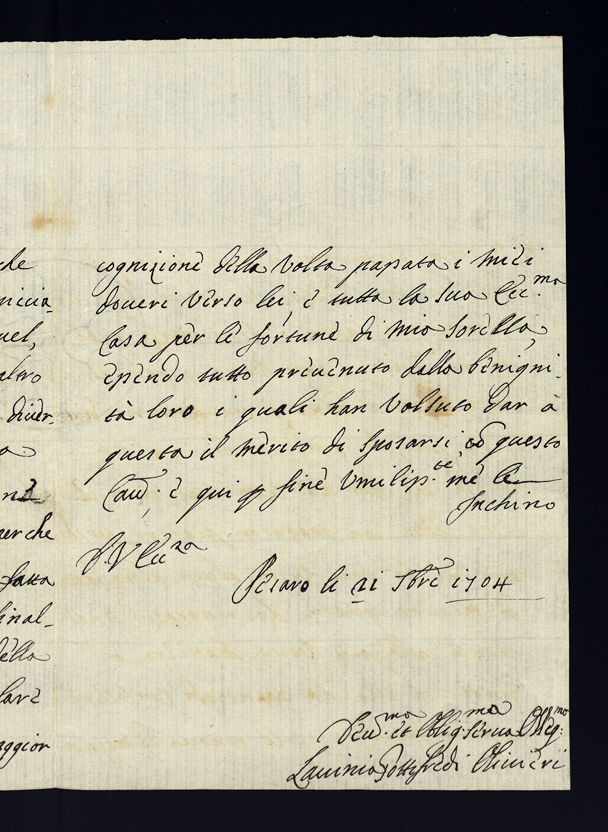 che
nicia-
uel,
altro
diuer-
a
perche
fatta
inal-
della
lare
aggior
cognizione della Volta passata i miei
doueri verso lei, è tutta la sua Ecc.ma
Casa pèr le fortune di mio Sorella,
essendo tutto preuenuto dalla benigni-
tà loro i quali han Voluto Dar à
questa il mèrito di Sposarsi cõ questo
Cau.e, è qui p fine Vmiliss.te mè le
Inchino
D V Ecc.za
Pesaro li 21 Sbre 1704
Deu.ma et Oblig.ma Serua Oblig.mo
Lauinia Gottifredi Oliuieri